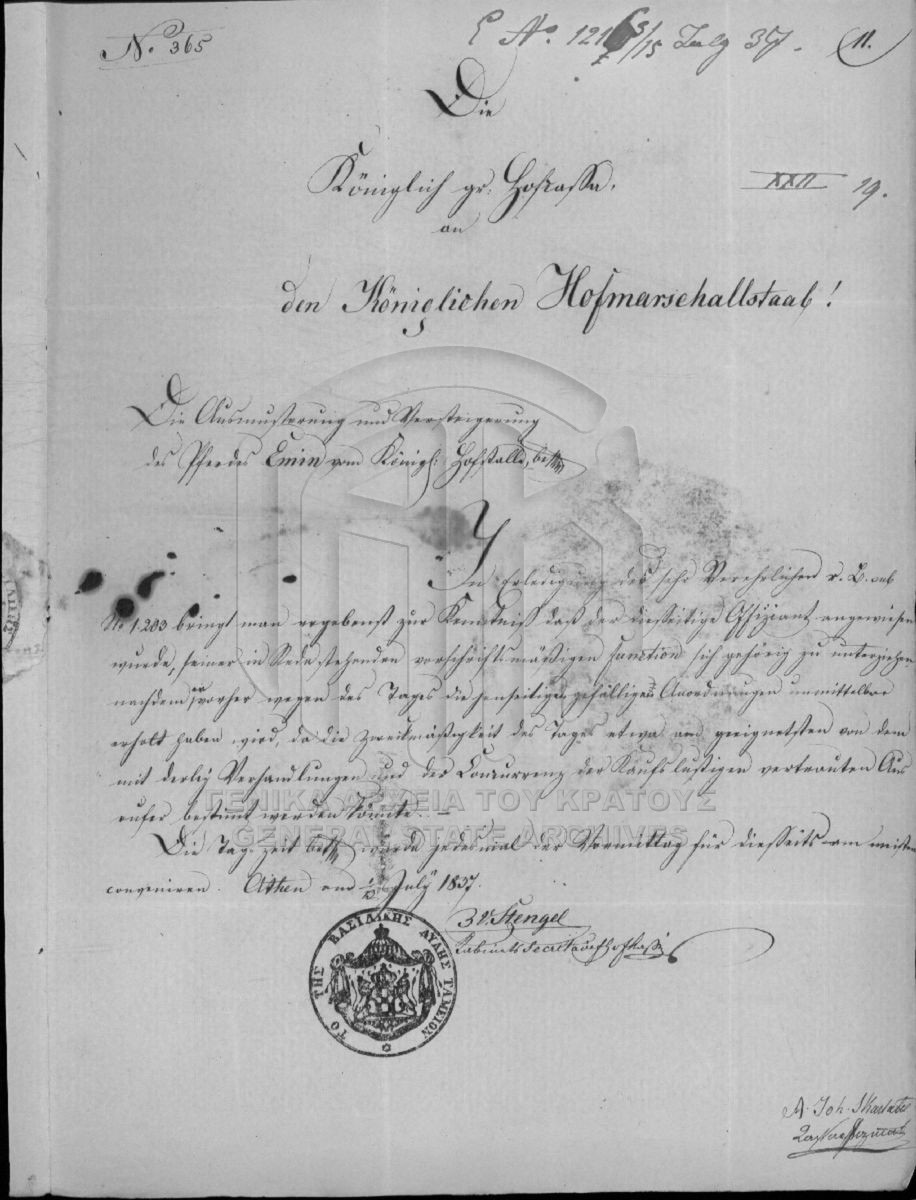 No. 365
E No. 1216 3/15 July 37.
11.
Die
Königlich gr. Hofcassa,
XXII 19.
an
den Königlichen Hofmarschallstaab!
Die Ausmusterung und Versteigerung
des Pferdes Emin vom Königl: Hofstalle, betr.
In Erledigung des sehr Verehrlichen r. B. sub
No 1203 bringt man ergebenst zur Kenntniß daß der diesseitige Offiziant angewiesen
wurde, seiner in Rede stehenden vorschriftsmäßigen Function sich gehörig zu unterziehen
nachdem er vorher wegen des Tages die jenseitigen gefälligen Anordnungen unmittelbar
erholt haben wird, da die Zweckmäßigkeit des Tages etwa am geeignetsten von dem
mit derley Verhandlungen und der Concurrenz der Kaufslustigen vertrauten Aus
rufer bestimt werden könnte. –
Die Tag-Zeit betr. würde jedesmal der Vormittag für diesseits am meisten
conveniren. Athen am July 1837.
v. Stengel
Kabinets Secretär
ΤΟ ΤΗΣ ΒΑΣΙΛΙΚΗΣ ΑΥΛΗΣ ΤΑΜΕΙΟΝ
ΓΕΝΙΚΑ ΑΡΧΕΙΑ ΤΟΥ ΚΡΑΤΟΥΣ
GENERAL STATE ARCHIVES
A. Joh.